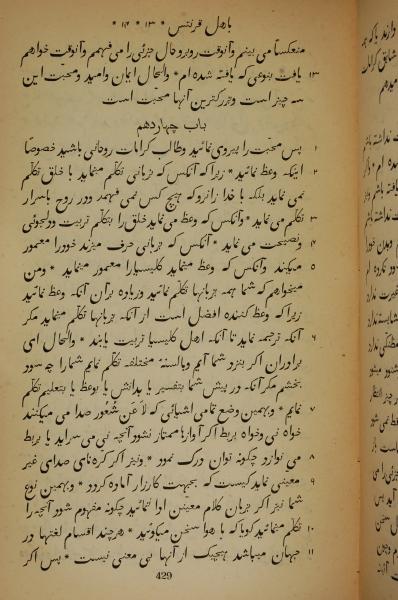 باهل قرنتس * ۱۳ * ۱۴ *
منعکسًا می بینم و آنوقت روبرو حال جزئی را می فهمم و آنوقت خواهم
۱۳ یافت بنوعی که یافته شده ام * والحال ایمان و امید و محبّت این
سه چیز است و بزرکترین آنها محبّت است
باب چهاردهم
۱ پس محبّت را پیروی نمائید و طالب کرامات روحانی باشید خصوصًا
۲ اینکه وعظ نمائید * زیرا که آنکس که بزبانی تکلّم مینماید با خلق تکلّم
نمی نماید بلکه با خدا زانرو که هیچ کس نمی فهمد و در روح باسرار
۳ تکلّم می نماید * و آنکس که وعظ می نماید خلق را بتکلّم تربیت و دلجوئی
۴ و نصیحت می نماید * آنکس که بزبانی حرف میزند خود را معمور
۵ میکند و آنکس که وعظ مینماید کلیسیا را معمور مینماید * و من
میخواهم که شما همه بزبانها تکلّم نمائید و زیاده بر آن آنکه وعظ نمائید
زیرا که وعظ کننده افضل است از آنکه بزبانها تکلّم مینماید مکر
۶ آنکه ترجمه نماید تا آنکه اهل کلیسیا تربیت یابند * والحال ای
برادران اکر بنزد شما آیم و بالسنهٔ مختلفه تکلّم نمایم شما را چه سود
بخشم مکر آنکه در پیش شما بتفسیر یا بدانش یا بوعظ یا بتعلیم تکلّم
۷ نمایم * و بهمین وضع تمامی اشیائی که لا عن شعور صدا می میکنند
خواه نی و خواه بربط اکر آوازها ممتاز نشود آنچه بنی می سراید یا بربط
۸ می نوازد چکونه توان درک نمود * و نیز اکر کرّه نای صدای غیر
۹ معینی نماید کیست که بجهت کارزار آماده کردد * و بهمین نوع
شما نیز اکر بزبان کلام معین ادا ننمائید چکونه مفهوم شود آنچه را
۱۰ تکلّم مینمائید کویا که با هوا سخن میکوئید * هر چند اقسام لغتها در
۱۱ جهان میباشد هیچیک از آنها بی معنی نیست * پس اکر
429